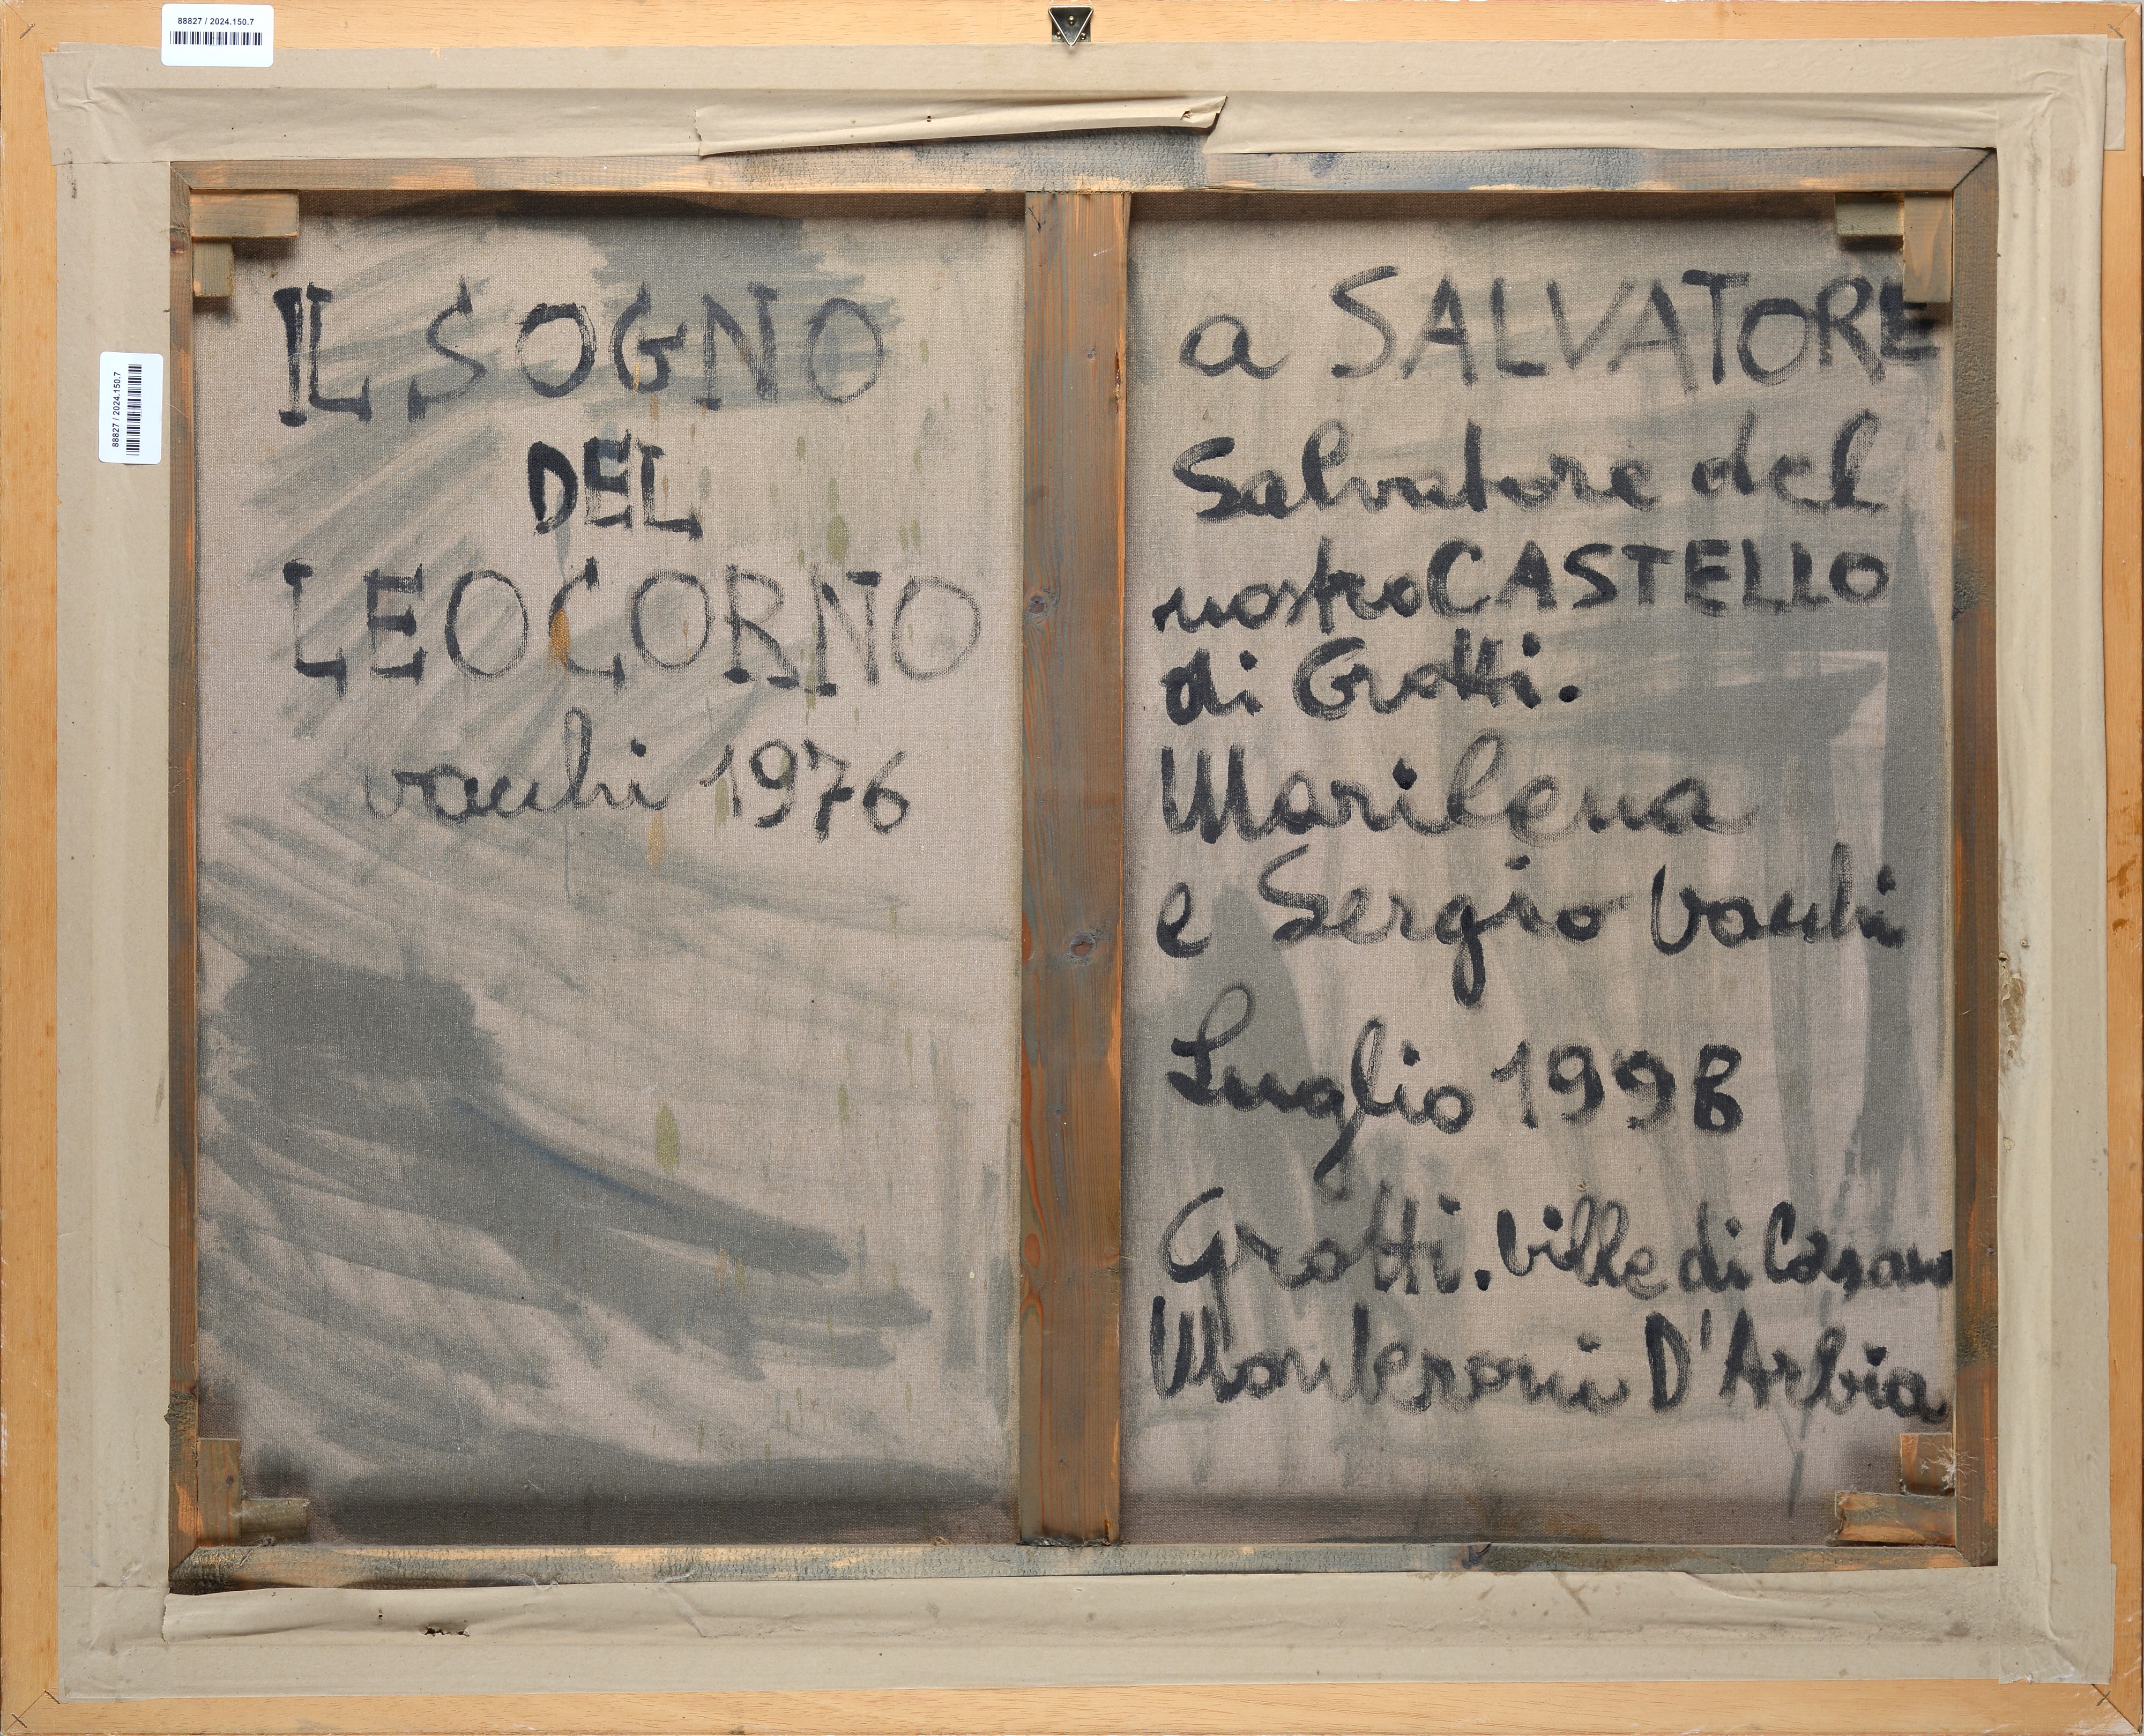 88827 / 2024.150.7
88827 / 2024.150.7
IL SOGNO
DEL
LEOCORNO
vacchi 1976
a SALVATORE
Salvatore del
nostro CASTELLO
di Grotti.
Marilena
e Sergio Vacchi
Luglio 1998
Grotti. Ville di Corsano
Monteroni D'Arbia